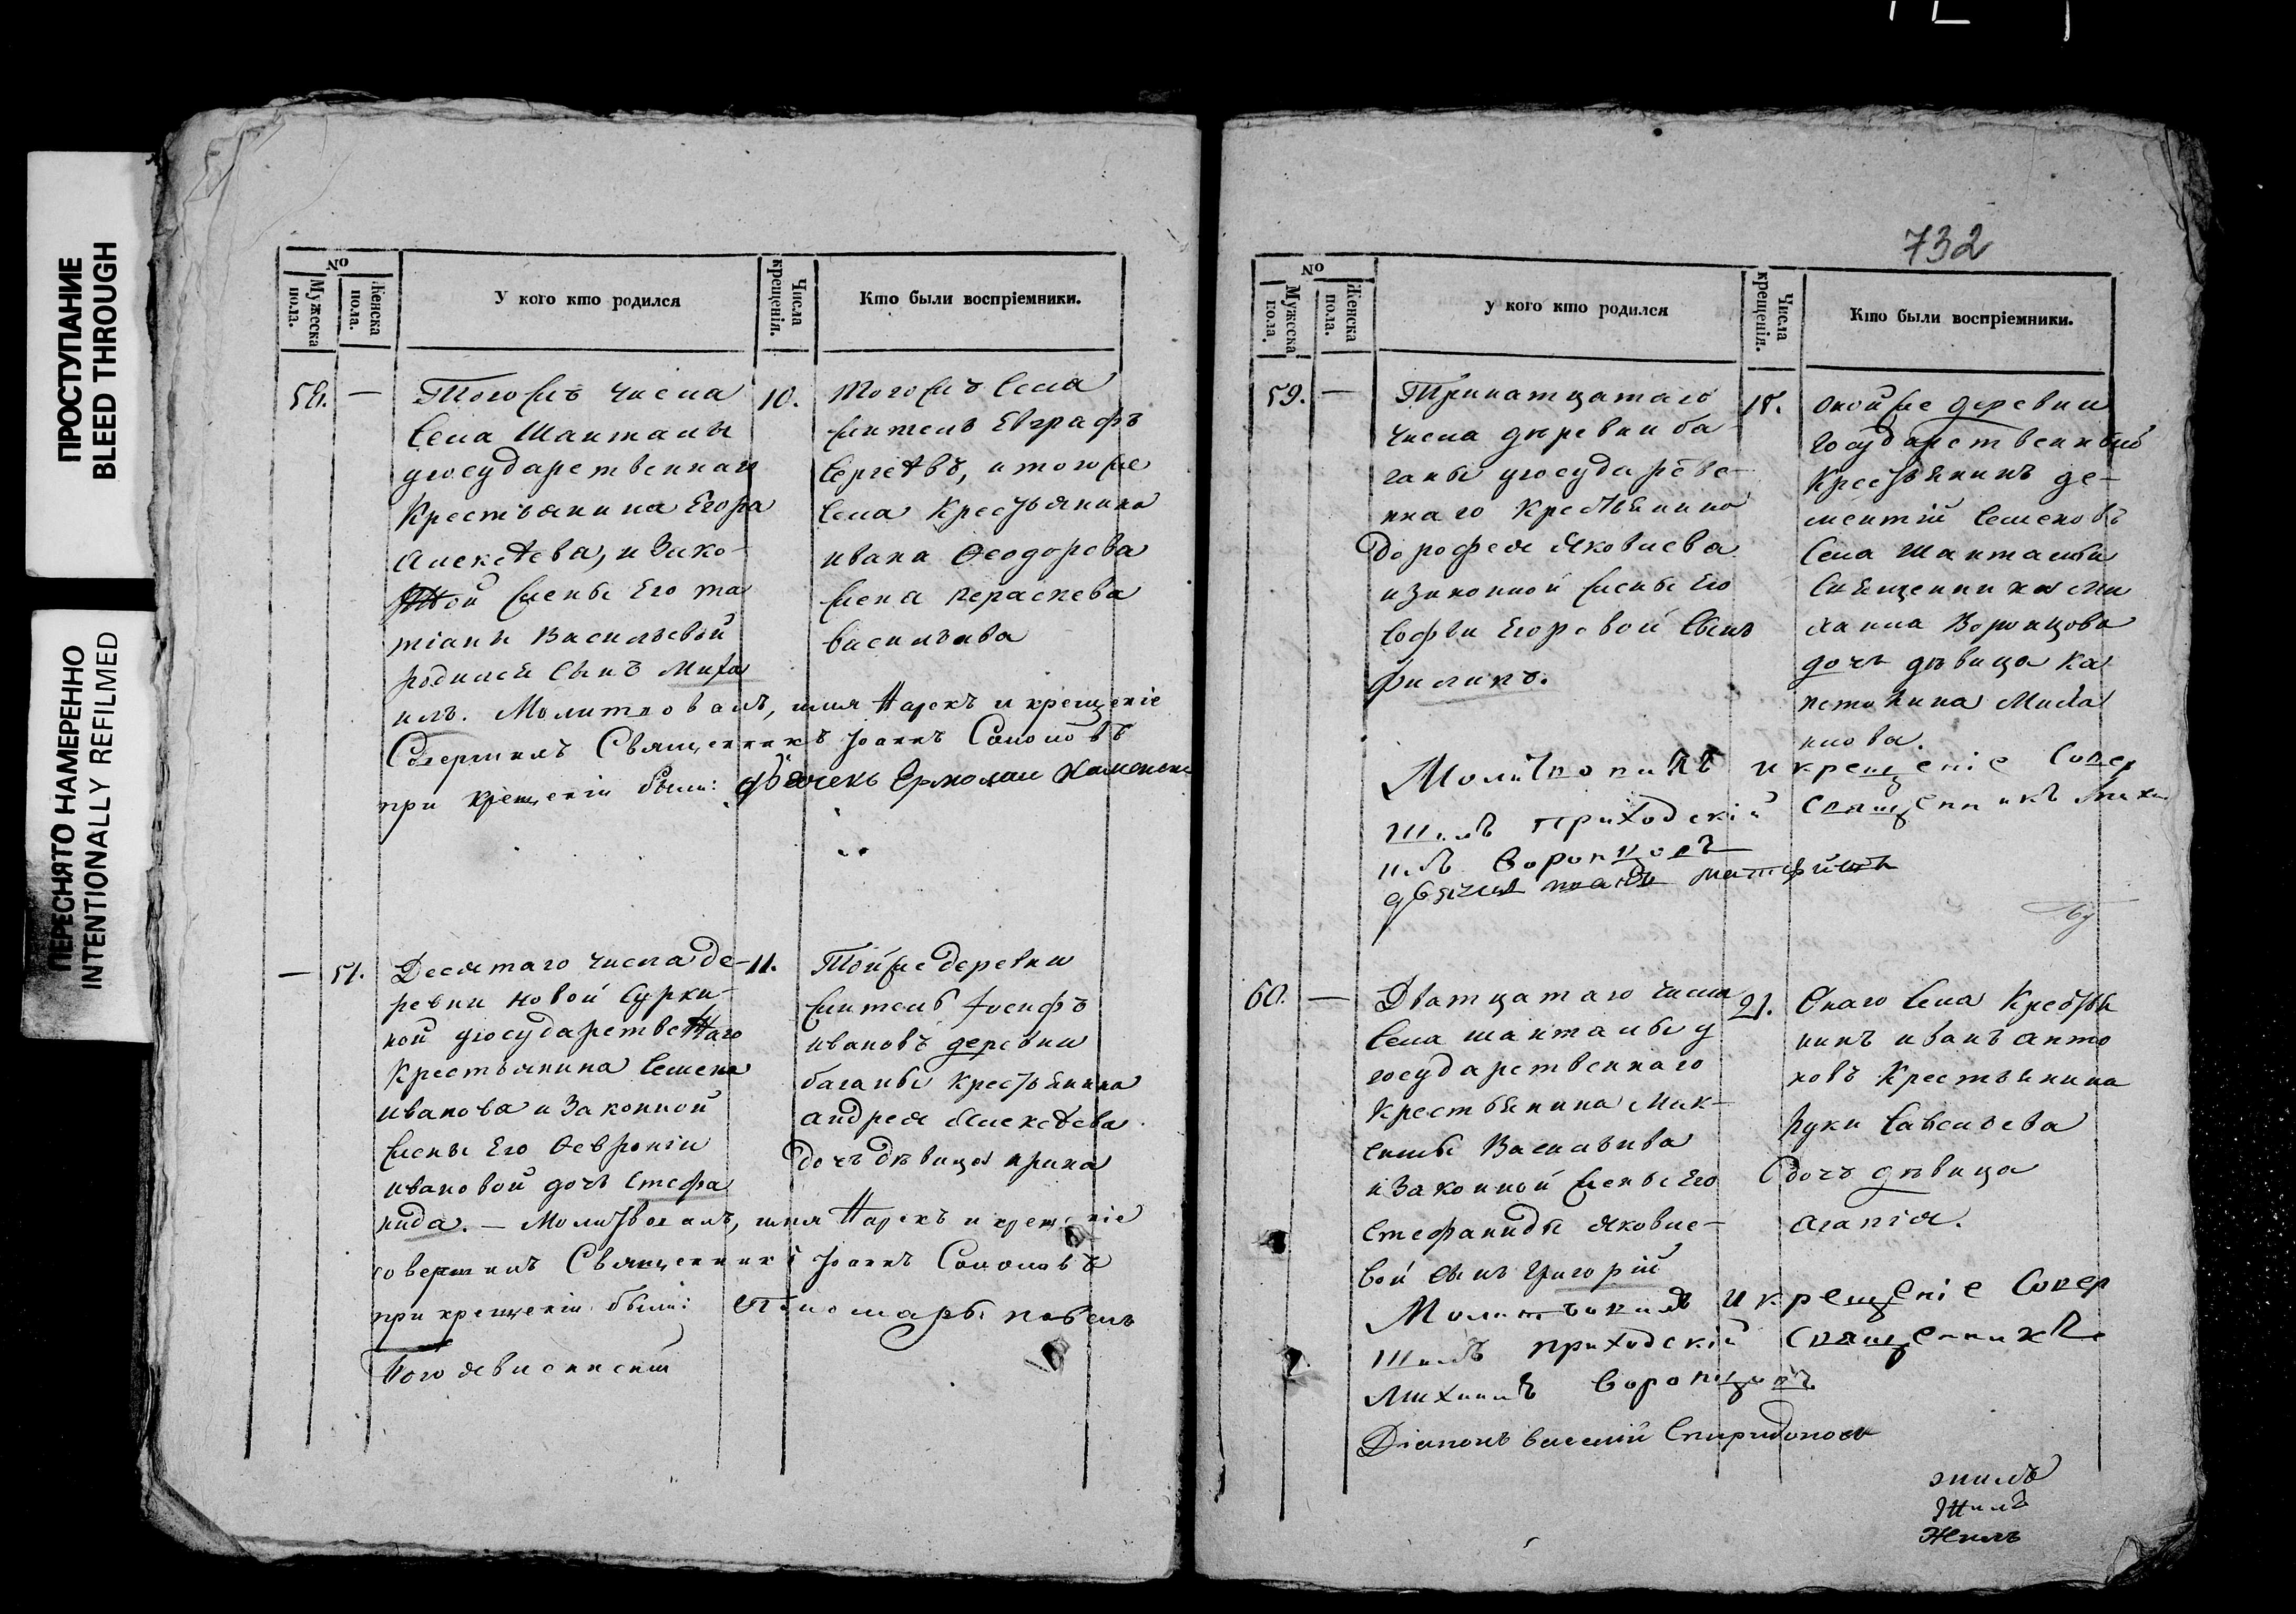 ПРОСТУПАНИЕ
BLEED THROUGH
ПЕРЕСНЯТО НАМЕРЕННО
INTENTIONALLY REFILMED
№
Мужеска пола.
Женска пола.
У кого кто родился
Числа крещенія.
Кто были воспріемники.
58. —
Тогожъ числа
села Шанталы
угосударственнаго
Крестьянина Егора
Алексѣева, и зако-
ной жены Его та
тіаны Васильевой
родился сынъ Миха
илъ. Молитвовалъ, имя нарекъ и крещеніе
Совершилъ Священникъ Іоаннъ Соколовъ
при крещеніи были: дьячекъ Ермолай
10.
тогожъ села
житель Евграфъ
Сергѣевъ, и тогоже
села крестьянина
ивана Ѳеодорова
жена параскева
васильива
— 51.
Десятаго числа де-
ревни новой Сурки-
ной угосударственаго
Крестьянина Семена
иванова и законной
жены Его Ѳевроніи
ивановой дочь Стефа
нида. — Молитвовалъ, имя нарекъ и крещеніе
совершилъ Священникъ Іоаннъ Соколовъ
при крещеніи были: Пономарь павелъ
Богоявленскій
11.
Тойже деревни
житель Іосифъ
ивановъ деревни
баганы крестьянина
андрея Алексѣева
дочь дѣвица ирина
732
№
Мужеска пола.
Женска пола.
У кого кто родился
Числа крещенія.
Кто были воспріемники.
59. —
Тринатцатаго
числа деревни ба-
ганы угосударстве-
ннаго крестьянина
Дорофея Яковлева
и законной жены Его
Софьи Егоровой сынъ
филипъ.
Молитвовалъ и крещеніе Совер
шилъ приходскій священникъ Миха
илъ Воронцовъ
дьячекъ
18.
оной же деревни
государственный
Крестьянинъ де-
ментій Семеновъ
Села Шанталы
Священника Ми
хаила Воронцова
дочь дѣвица Ка
питолина Михаи
лова.
60. —
Дватцатаго числа
села шанталы у
государственнаго
Крестьянина Мак-
симы Васильива
и законной жены Его
стефаниды яковле-
вой сынъ григорій
Молитвовалъ и крещеніе Совер
шилъ приходскій священникъ
Михаилъ Воронцовъ
Діаконъ василій Спиридоновъ
21.
Онаго села Крестья
нинъ иванъ анто
новъ Крестьянина
Луки Савельева
дочь дѣвица
агапія.